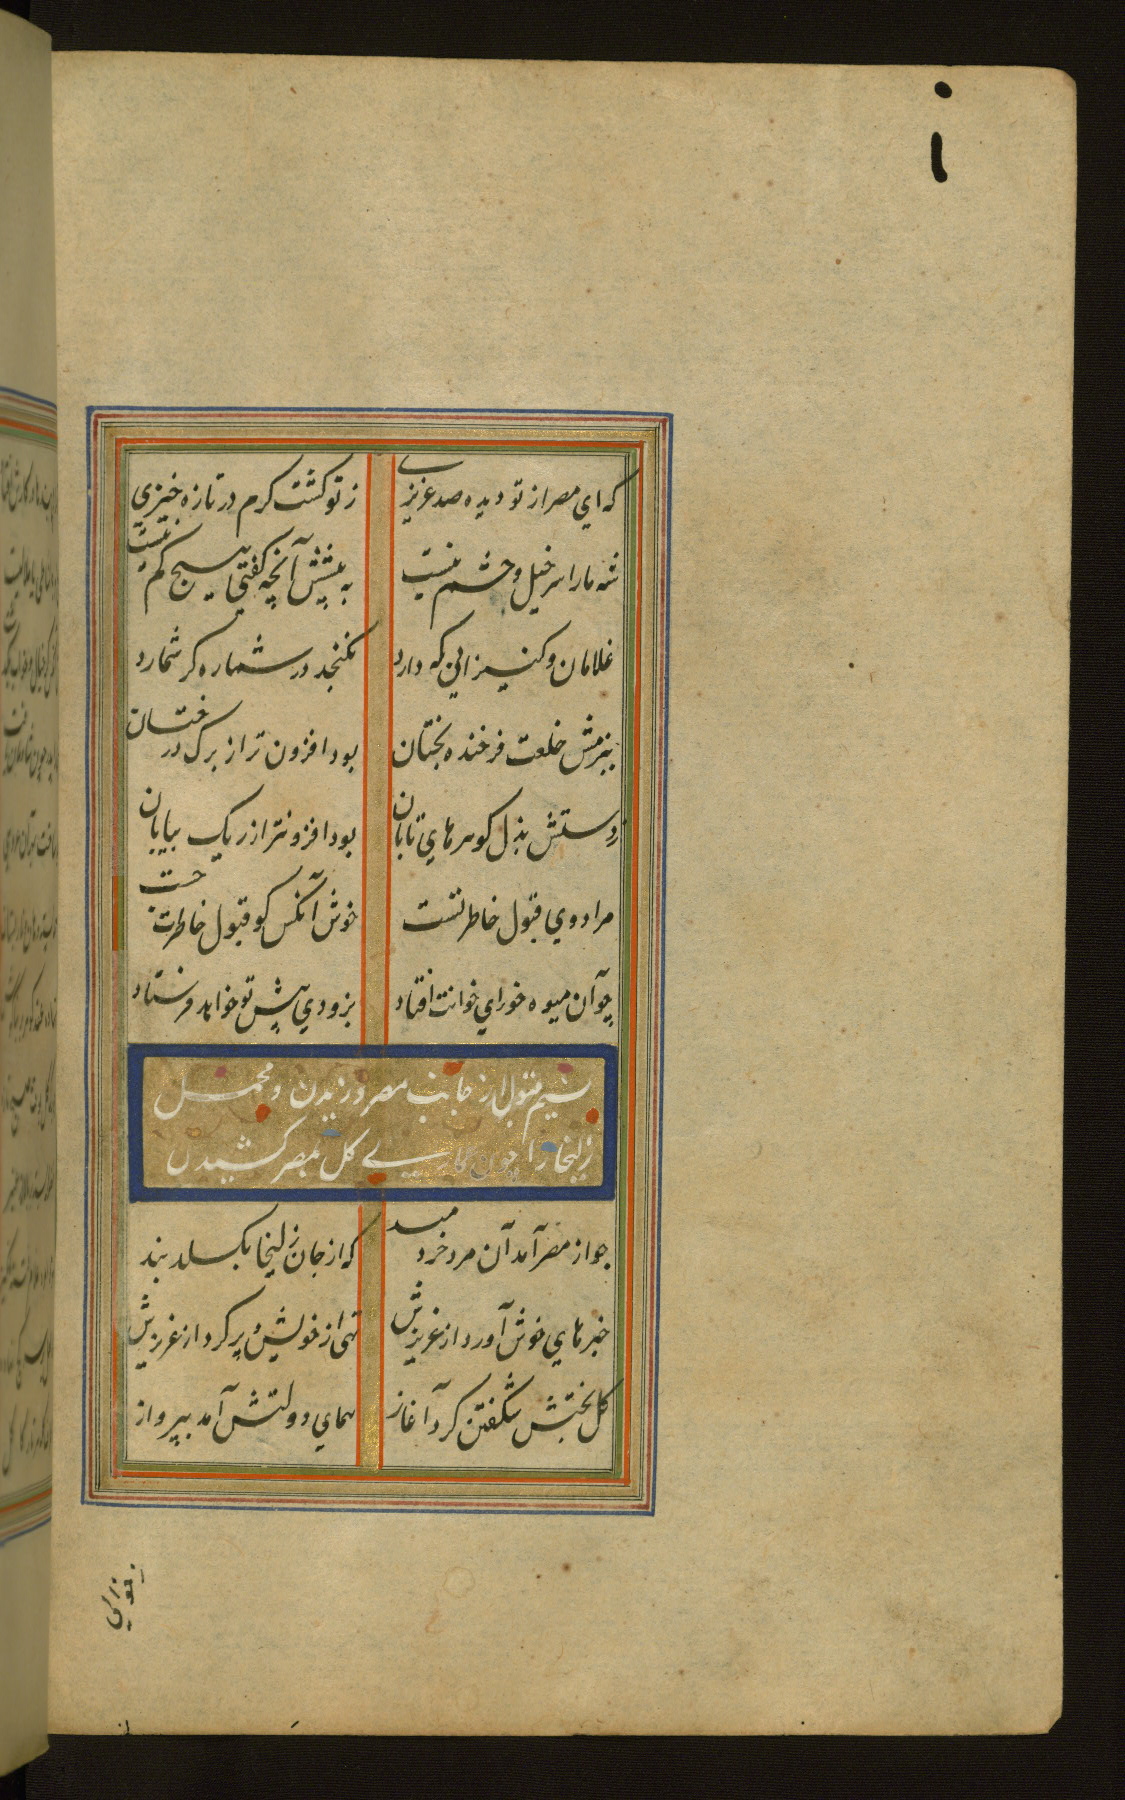 که ای مصر از تو دیده صد عزیزی
ز تو کشت کرم در تازه خیزی
شه ما را سر خیل و حشم نیست
به پیشش آنچه گفتی هیچ کم نیست
غلامان و کنیزانی که دارد
نگنجد در شماره گر شمارد
ببزمش خلعت فرخنده بختان
بود افزون تر از برگ درختان
ز دستش بذل گوهرهای تابان
بود افزونتر از ریگ بیابان
مراد وی قبول خاطر تست
خوش آنکس کو قبول خاطرت جست
چو آن میوه خورای خوانت افتاد
بزودی پیش تو خواهد فرستاد
نسیم قبول از جانب مصر وزیدن و محمل
زلیخا را چون عماری گل بمصر کشیدن
چو از مصر آمد آن مرد خردمند
که از جان زلیخا بگسلد بند
خبرهای خوش آورد از عزیزش
تهی از خویش و پر کرد از عزیزش
گل بختش شگفتن کرد آغاز
همای دولتش آمد بپرواز
ز خوابی